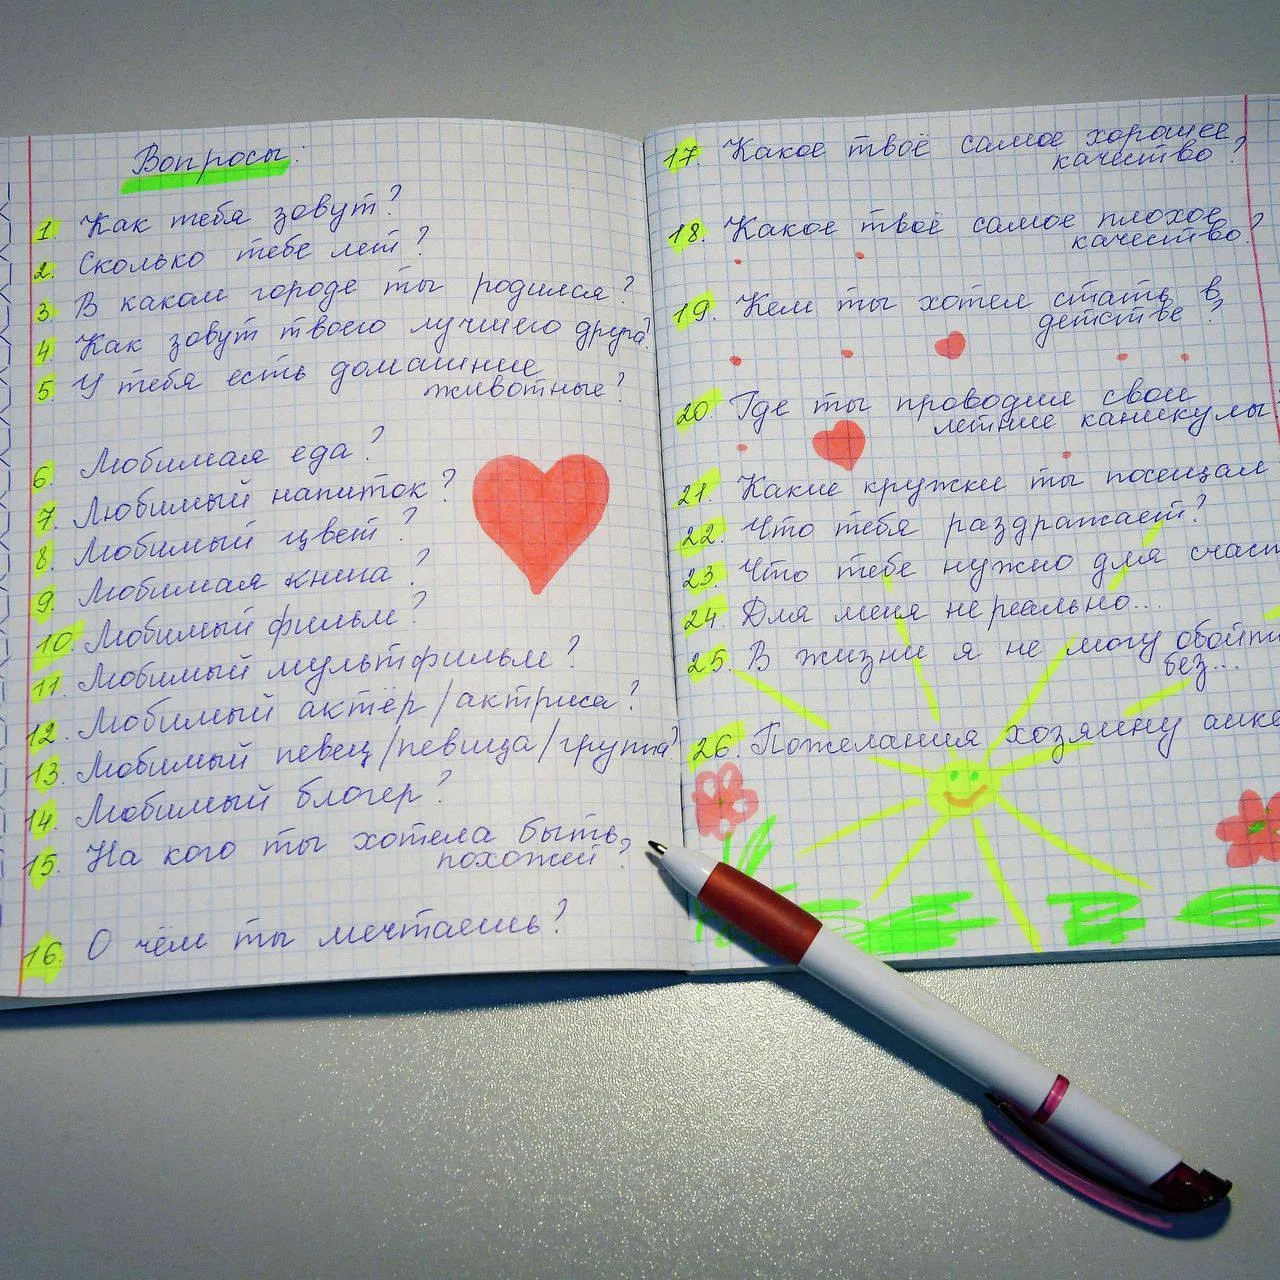 Вопросы:
1. Как тебя зовут?
2. Сколько тебе лет?
3. В каком городе ты родился?
4. Как зовут твоего лучшего друга?
5. У тебя есть домашние
животные?
6. Любимая еда?
7. Любимый напиток?
8. Любимый цвет?
9. Любимая книга?
10. Любимый фильм?
11. Любимый мультфильм?
12. Любимый актёр/актриса?
13. Любимый певец/певица/группа?
14. Любимый блогер?
15. На кого ты хотела быть
похожей?
16. О чём ты мечтаешь?
17 Какое твоё самое хорошее
качество?
18. Какое твоё самое плохое
качество?
19. Кем ты хотел стать в
детстве?
20 Где ты проводил свои
летние каникулы?
21. Какие кружки ты посещал
22. Что тебя раздражает?
23. Что тебе нужно для счаст
24. Для меня нереально...
25. В жизни я не могу обойти
без...
26. Пожелания хозяину анке